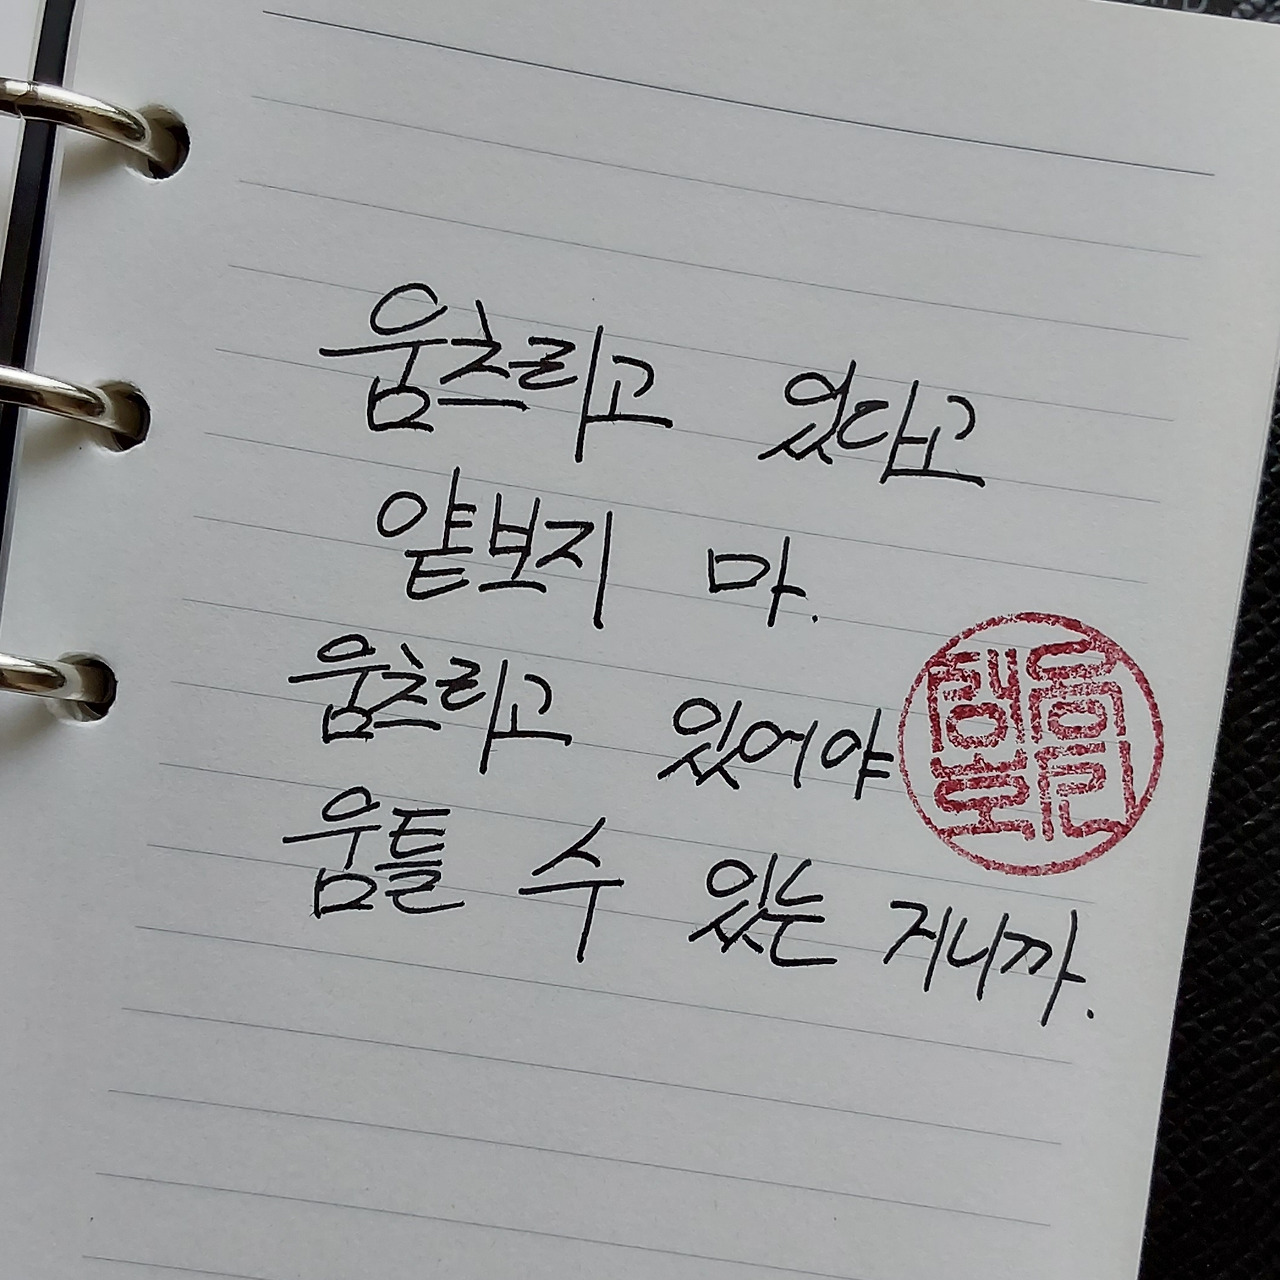 움츠리고 있다고
얕보지 마.
움츠리고 있어야
움틀 수 있는 거니까.